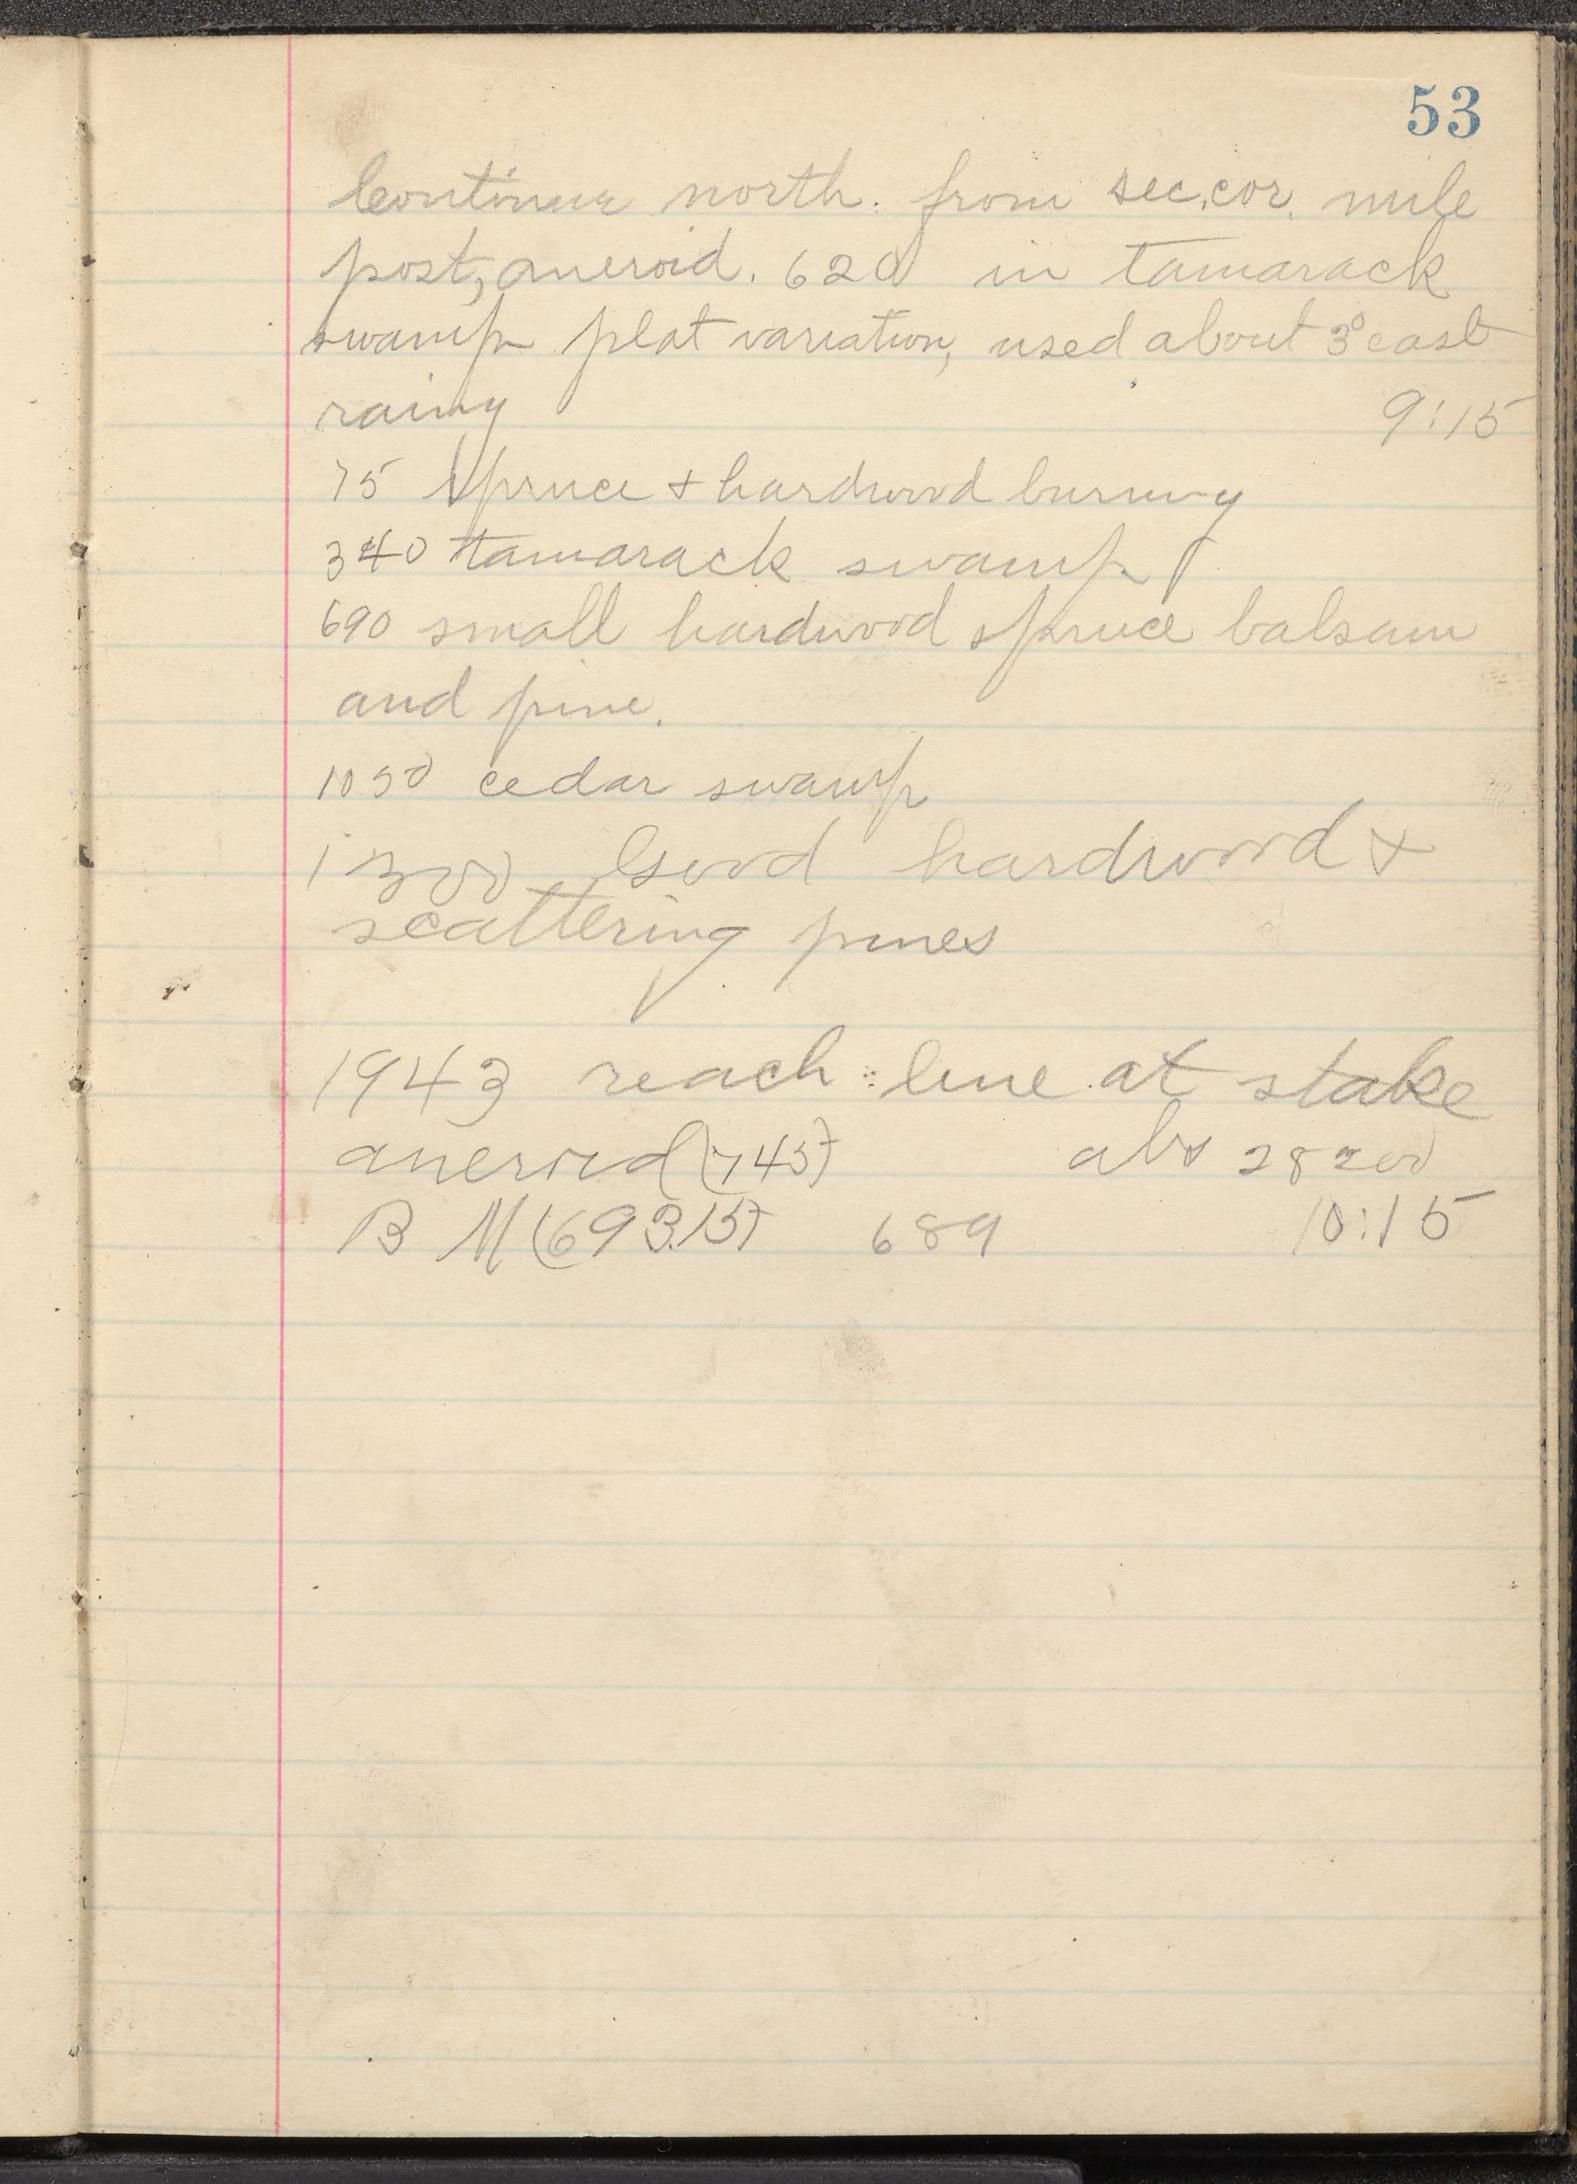 53
Continue north. from sec. cor. mile
post, aneroid. 620 in tamarack
swamp plat variation, used about 3° east
rainy 9:15
75 Spruce + hardwood burning
340 tamarack swamp
690 small hardwood spruce balsam
and pine.
1050 cedar swamp
1300 Good hardwood +
scattering pines
1943 reach line at stake
aneroid (745) abs 28200
B M (693.15) 689 10:15